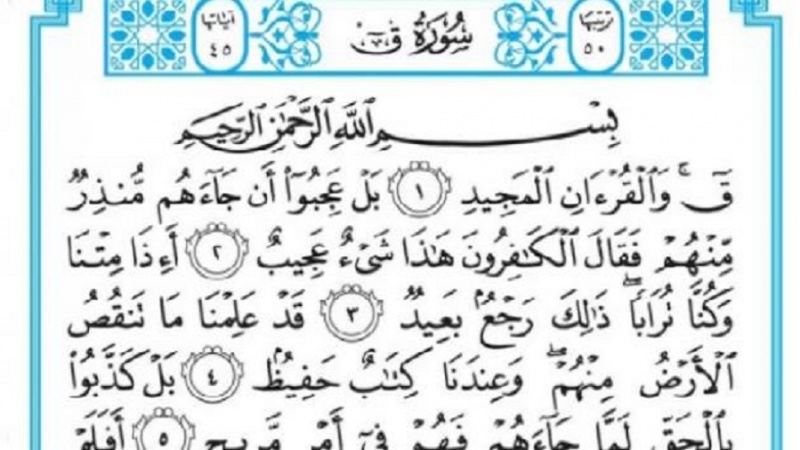 ترتيبها ٥٠ سُورَةُ قٓ آياتها ٤٥
بِسْمِ ٱللَّهِ ٱلرَّحْمَٰنِ ٱلرَّحِيمِ
قٓ ۚ وَٱلْقُرْءَانِ ٱلْمَجِيدِ ١ بَلْ عَجِبُوٓا۟ أَن جَآءَهُم مُّنذِرٌ
مِّنْهُمْ فَقَالَ ٱلْكَٰفِرُونَ هَٰذَا شَىْءٌ عَجِيبٌ ٢ أَءِذَا مِتْنَا
وَكُنَّا تُرَابًا ۖ ذَٰلِكَ رَجْعٌۢ بَعِيدٌ ٣ قَدْ عَلِمْنَا مَا تَنقُصُ
ٱلْأَرْضُ مِنْهُمْ ۖ وَعِندَنَا كِتَٰبٌ حَفِيظٌۢ ٤ بَلْ كَذَّبُوا۟
بِٱلْحَقِّ لَمَّا جَآءَهُمْ فَهُمْ فِىٓ أَمْرٍ مَّرِيجٍ ٥ أَفَلَمْ